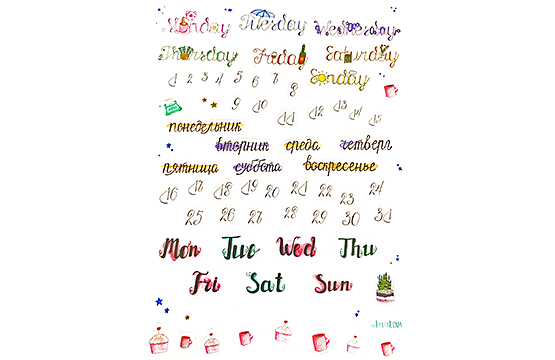 Monday Tuesday Wednesday
Thursday Friday Saturday
Sunday
1 2 3 4 5 6 7 8
9 10 11 12 13 14 15
понедельник
вторник среда четверг
пятница суббота воскресенье
16 17 18 19 20 21 22 23 24
25 26 27 28 29 30 31
Mon Tue Wed Thu
Fri Sat Sun